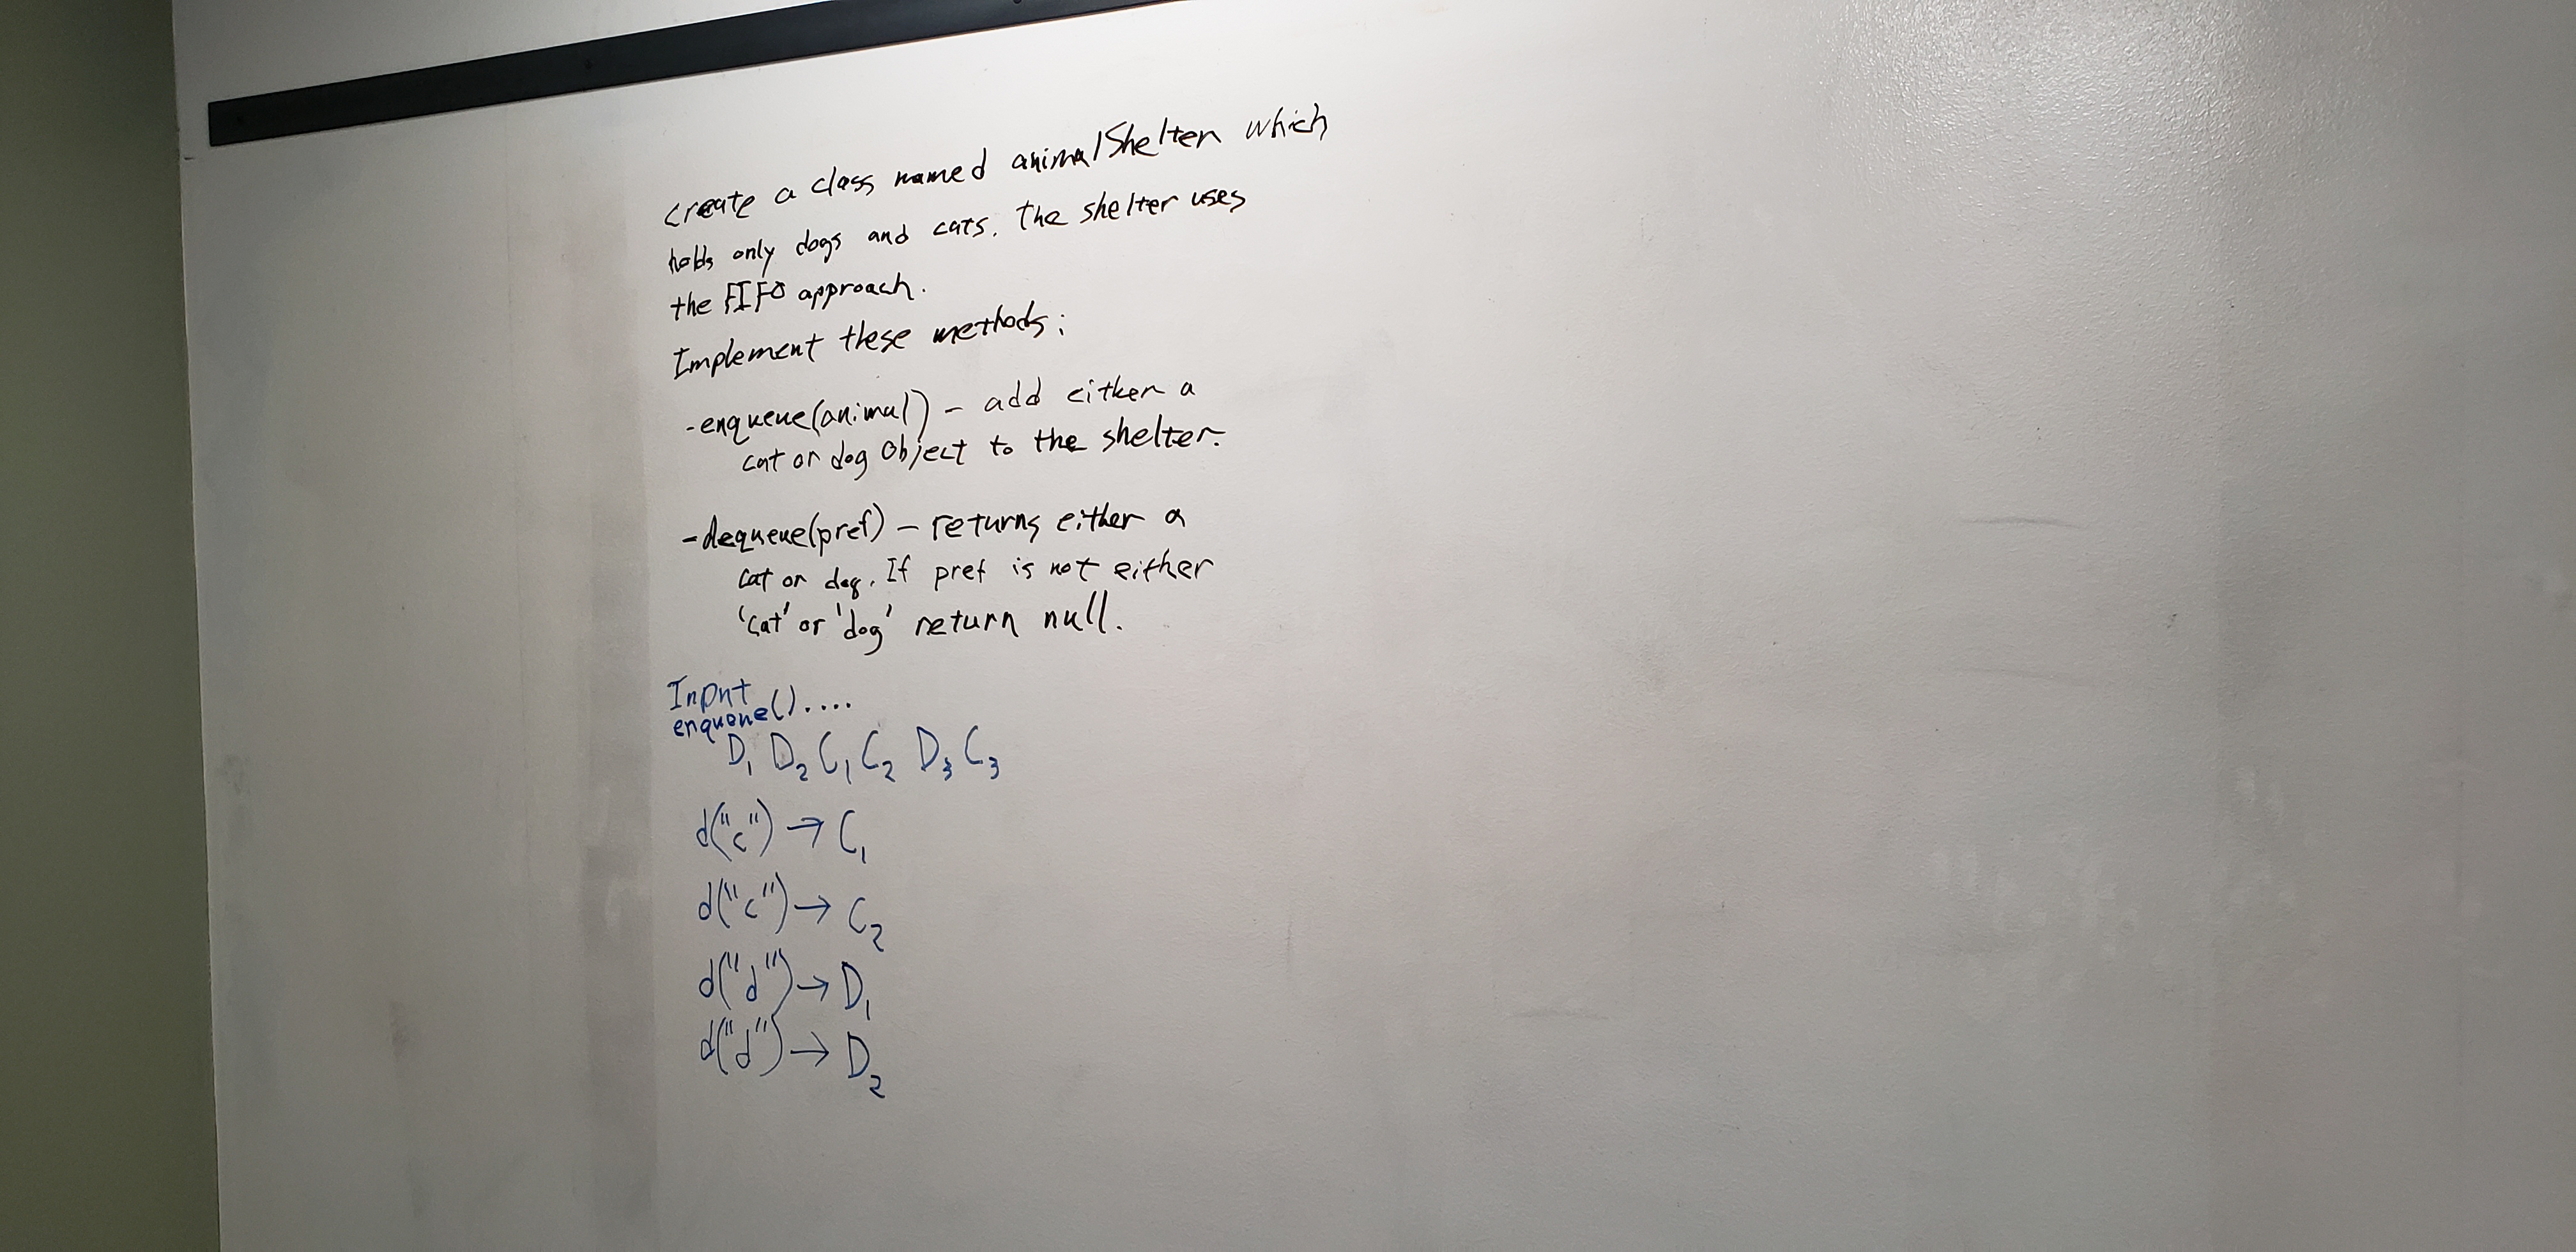 create a class named animalShelter which
holds only dogs and cats. The shelter uses
the FIFO approach.
Implement these methods:
-enqueue(animal) - add either a
cat or dog object to the shelter.
-dequeue(pref) - returns either a
cat or dog. If pref is not either
'cat' or 'dog' return null.
Input
enqueue()....
D₁ D₂ C₁ C₂ D₃ C₃
d("c") → C₁
d("c") → C₂
d("d") → D₁
d("d") → D₂